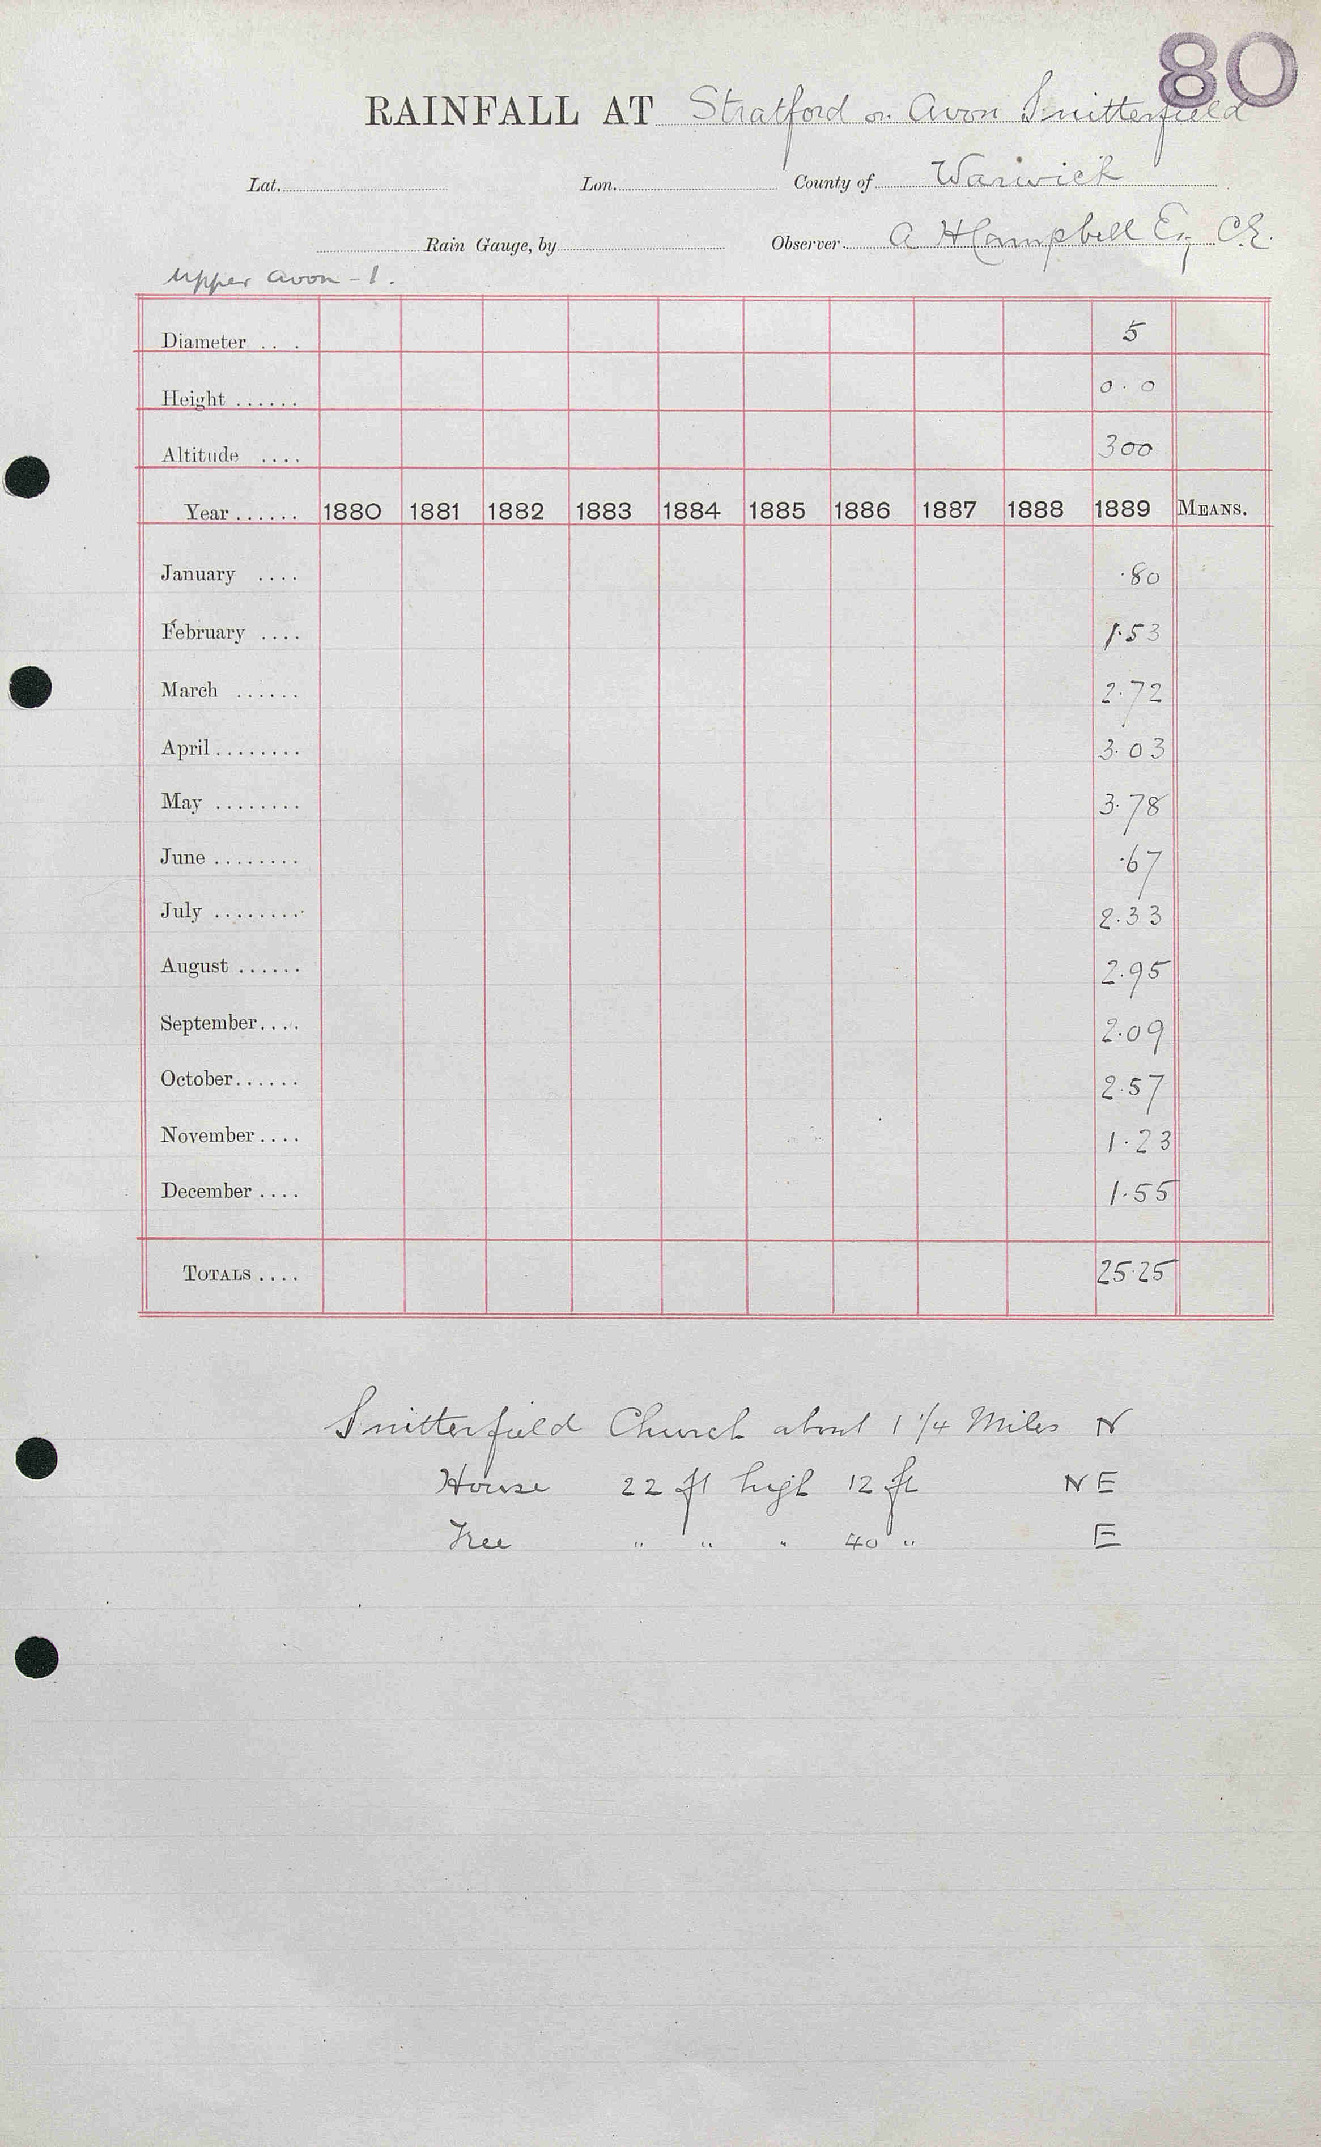 80
RAINFALL AT Stratford on Avon Snitterfield
Lat. Lon. County of Warwick
Rain Gauge, by Observer A H Campbell Esq C.E.
Upper Avon - 1.
Diameter .. . 5
Height ...... 0.0
Altitude .... 300
Year ...... 1880 1881 1882 1883 1884 1885 1886 1887 1888 1889 MEANS.
January .... .80
February .... 1.53
March ...... 2.72
April ........ 3.03
May ........ 3.78
June ........ .67
July ........ 2.33
August ...... 2.95
September.... 2.09
October...... 2.57
November.... 1.23
December.... 1.55
TOTALS .... 25.25
Snitterfield Church about 1 1/4 Miles N
House 22 ft high 12 ft NE
Tree " " " 40 " E